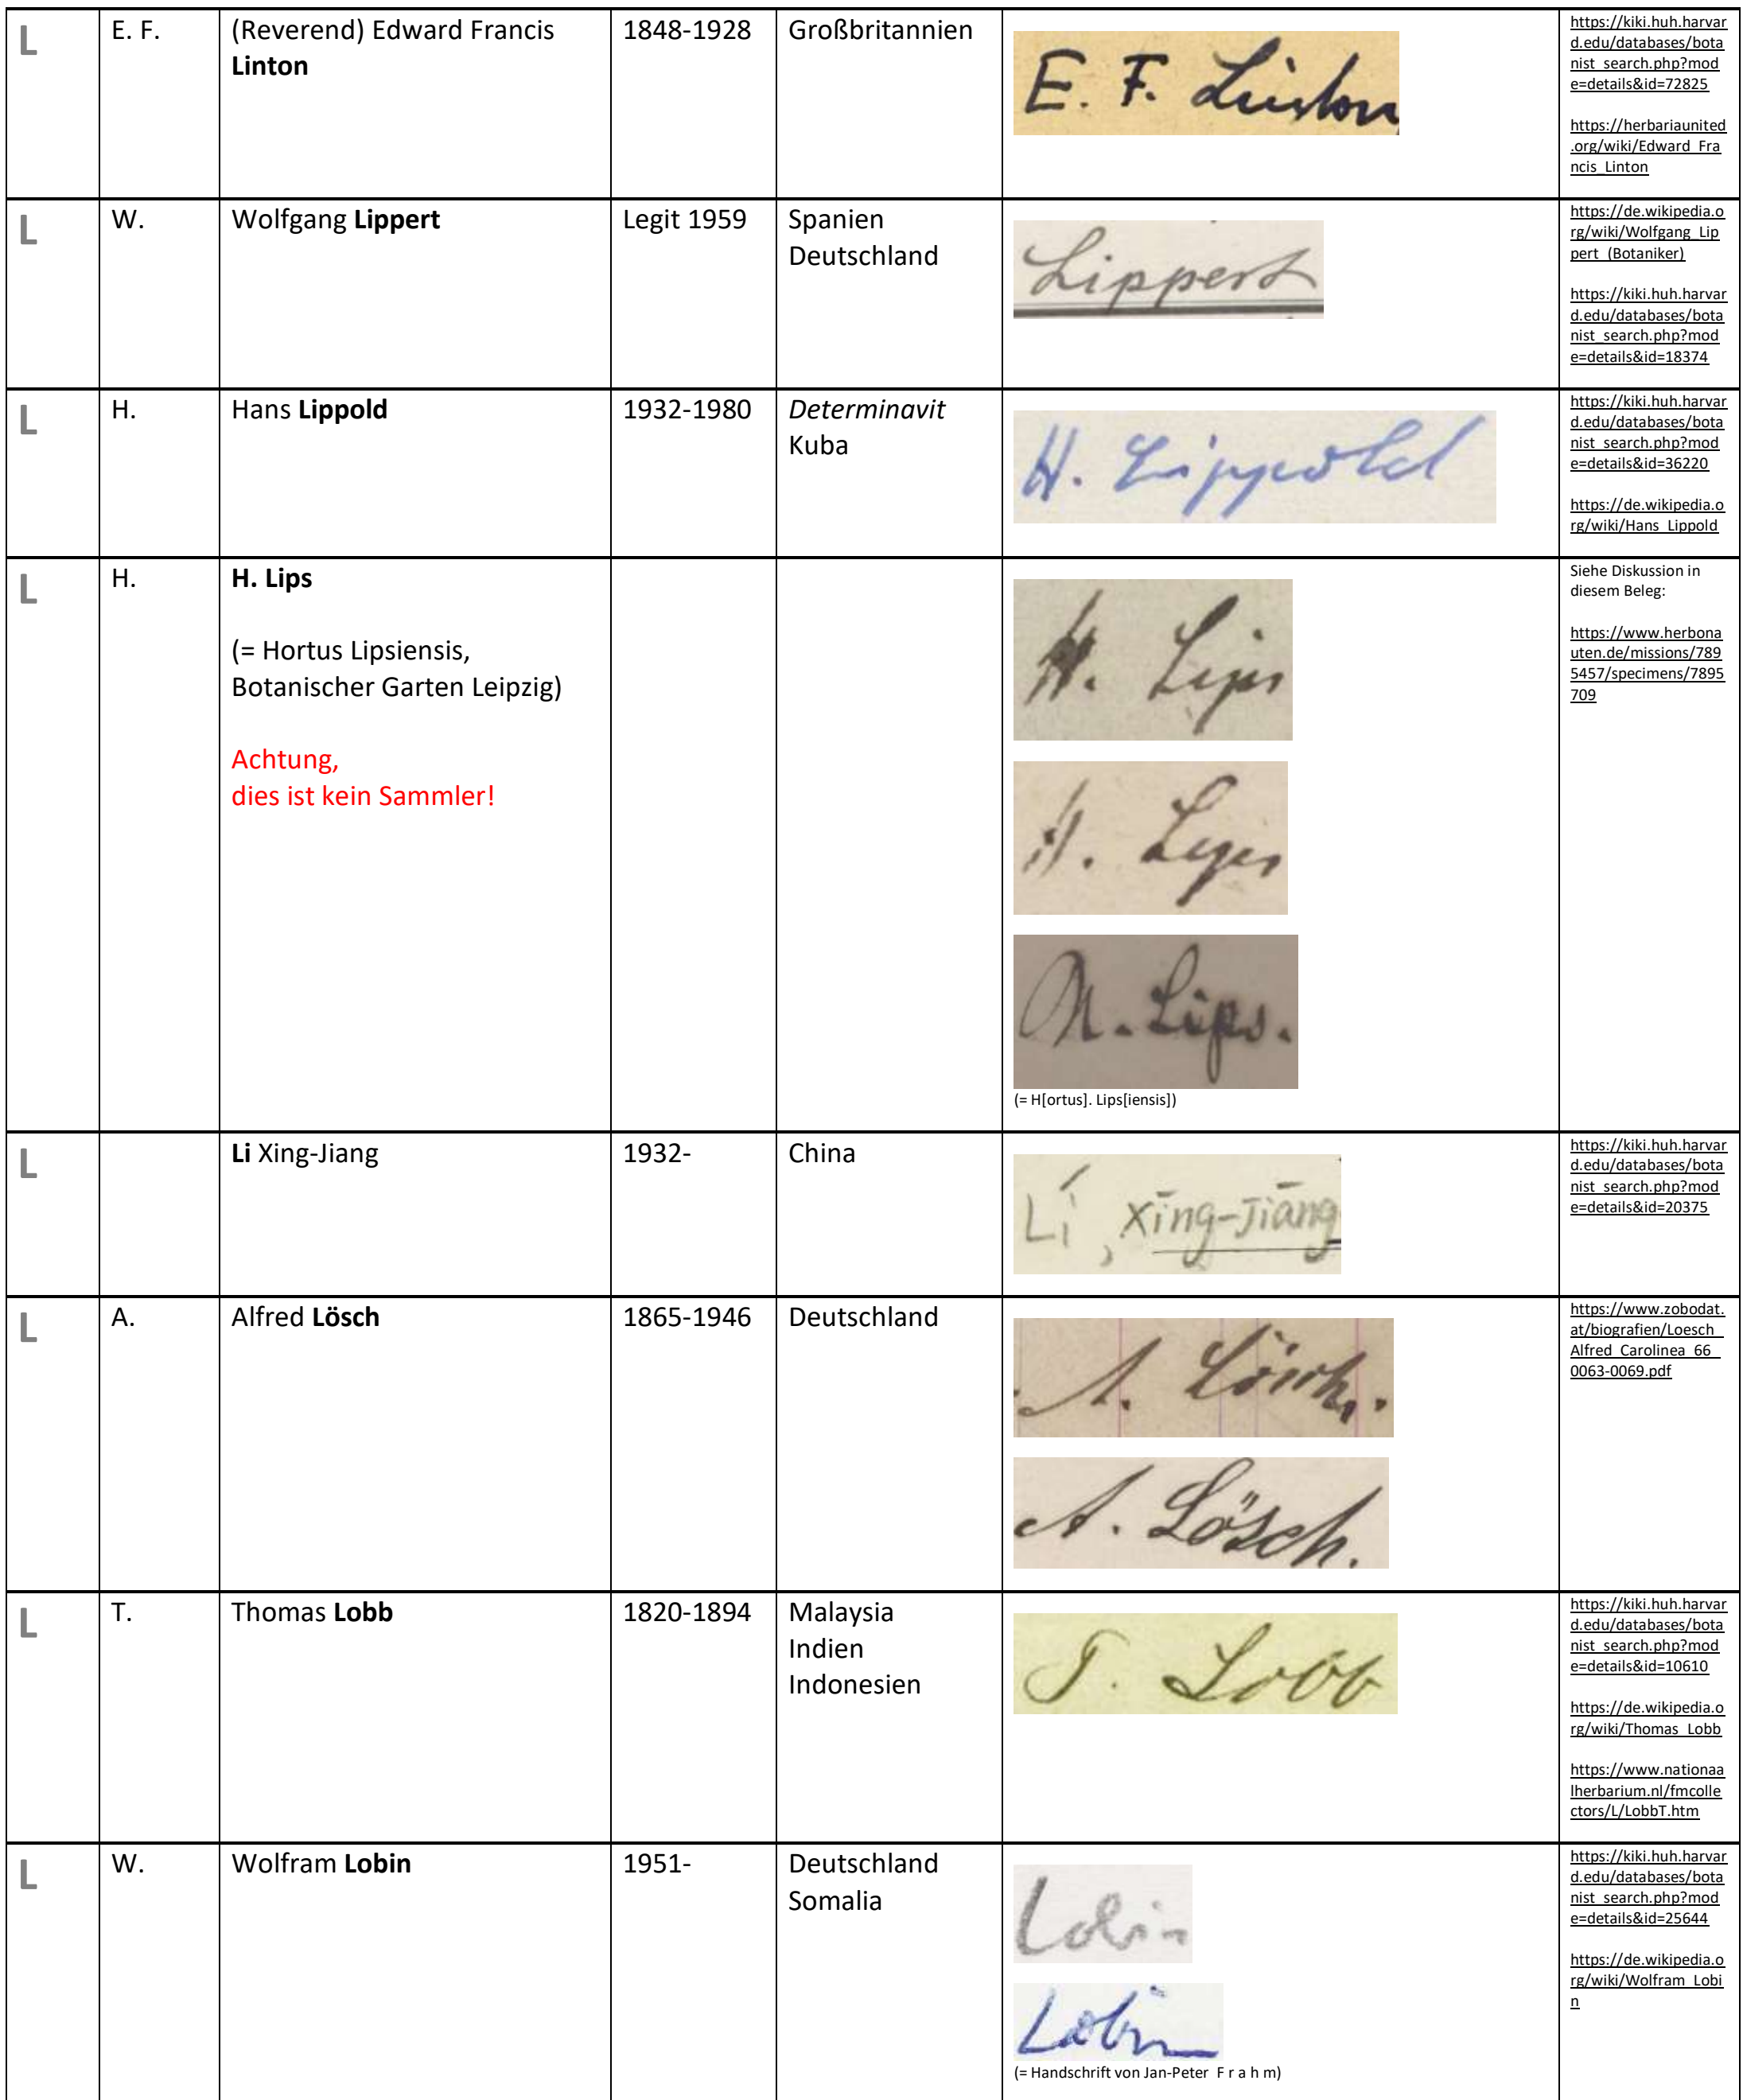 L E. F. (Reverend) Edward Francis 1848-1928 Großbritannien
Linton
E. F. Linton
https://kiki.huh.harvar
d.edu/databases/bota
nist_search.php?mod
e=details&id=72825
https://herbariaunited
.org/wiki/Edward_Fra
ncis_Linton
L W. Wolfgang Lippert Legit 1959 Spanien
Deutschland
Lippert
https://de.wikipedia.o
rg/wiki/Wolfgang_Lip
pert_(Botaniker)
https://kiki.huh.harvar
d.edu/databases/bota
nist_search.php?mod
e=details&id=18374
L H. Hans Lippold 1932-1980 Determinavit
Kuba
H. Lippold
https://kiki.huh.harvar
d.edu/databases/bota
nist_search.php?mod
e=details&id=36220
https://de.wikipedia.o
rg/wiki/Hans_Lippold
L H. H. Lips
(= Hortus Lipsiensis,
Botanischer Garten Leipzig)
Achtung,
dies ist kein Sammler!
H. Lips
H. Lips
H. Lips.
(= H[ortus]. Lips[iensis])
Siehe Diskussion in
diesem Beleg:
https://www.herbona
uten.de/missions/789
5457/specimens/7895
709
L Li Xing-Jiang 1932- China
Lí, Xīng-Jiāng
https://kiki.huh.harvar
d.edu/databases/bota
nist_search.php?mod
e=details&id=20375
L A. Alfred Lösch 1865-1946 Deutschland
A. Lösch.
A. Lösch.
https://www.zobodat.
at/biografien/Loesch_
Alfred_Carolinea_66_
0063-0069.pdf
L T. Thomas Lobb 1820-1894 Malaysia
Indien
Indonesien
T. Lobb
https://kiki.huh.harvar
d.edu/databases/bota
nist_search.php?mod
e=details&id=10610
https://de.wikipedia.o
rg/wiki/Thomas_Lobb
https://www.nationaa
lherbarium.nl/fmcolle
ctors/L/LobbT.htm
L W. Wolfram Lobin 1951- Deutschland
Somalia
Lobin
Lobin
(= Handschrift von Jan-Peter F r a h m)
https://kiki.huh.harvar
d.edu/databases/bota
nist_search.php?mod
e=details&id=25644
https://de.wikipedia.o
rg/wiki/Wolfram_Lobi
n